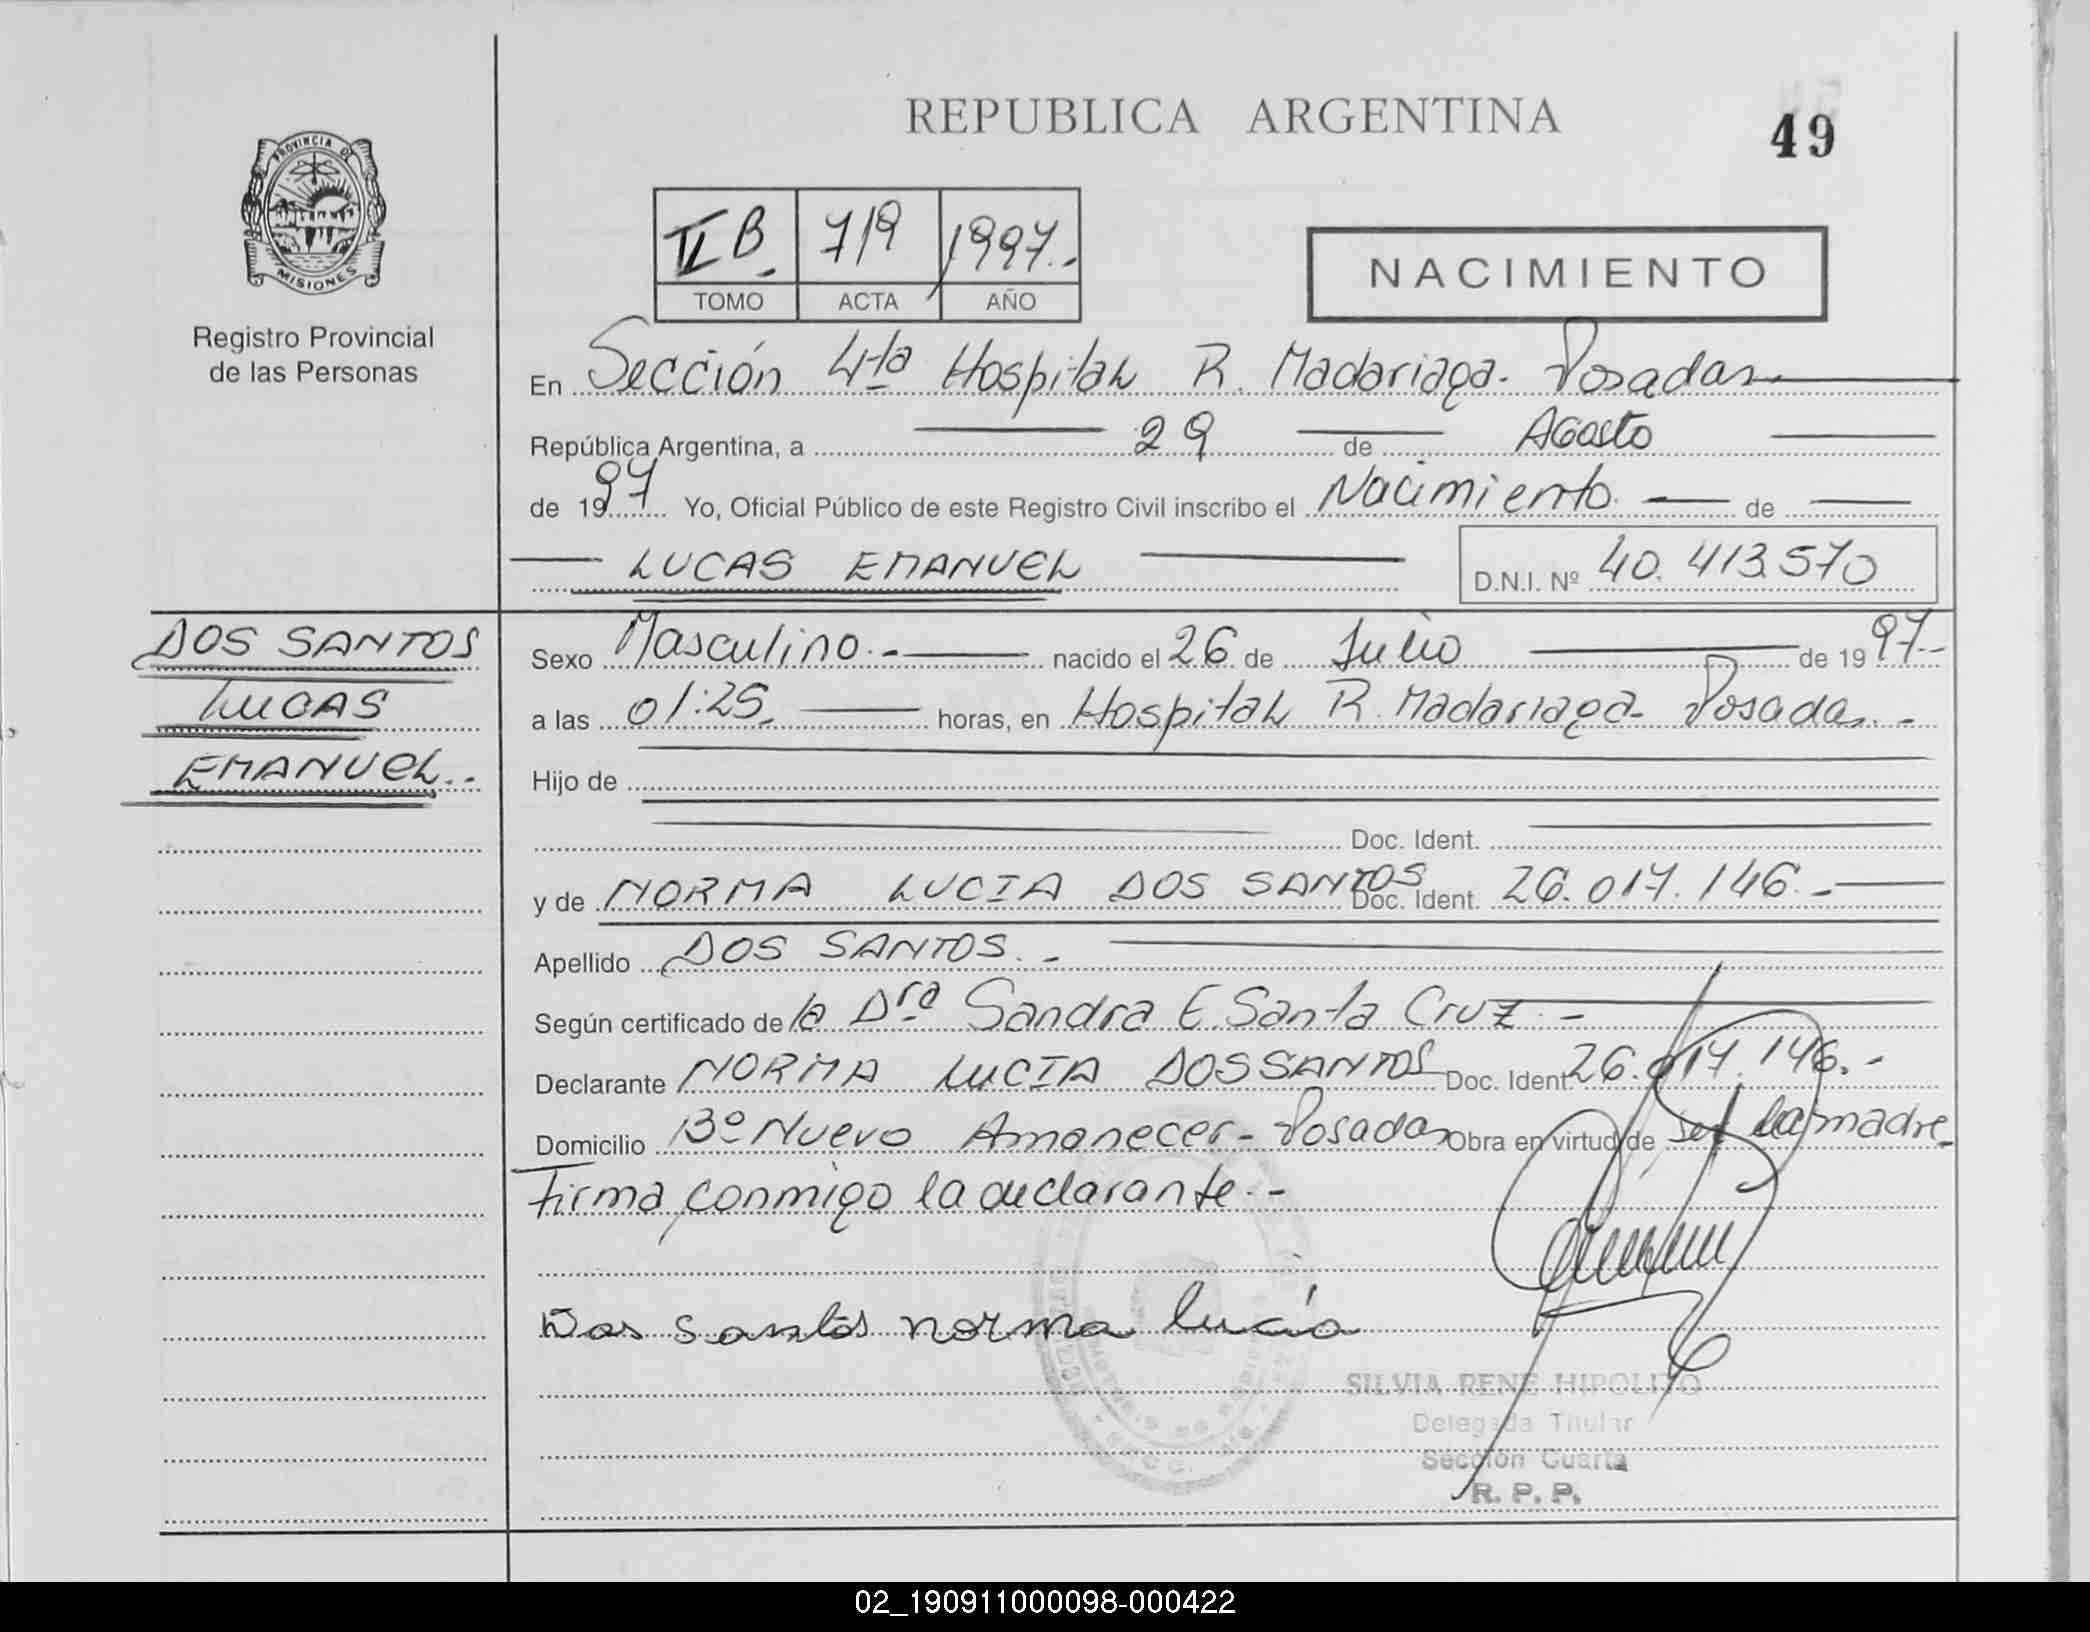 REPUBLICA ARGENTINA
49
PROVINCIA DE
MISIONES
Registro Provincial
de las Personas
II B. 719 1997.-
TOMO ACTA AÑO
NACIMIENTO
En Sección 4ta Hospital R. Madariaga. Posadas.
República Argentina, a 29 de Agosto
de 1997 Yo, Oficial Público de este Registro Civil inscribo el Nacimiento de
LUCAS EMANUEL D.N.I. Nº 40.413.570
DOS SANTOS
LUCAS
EMANUEL.-
Sexo Masculino.- nacido el 26 de Julio de 1997.-
a las 01:25. horas, en Hospital R. Madariaga- Posadas.-
Hijo de
Doc. Ident.
y de NORMA LUCIA DOS SANTOS Doc. Ident. 26.017.146.-
Apellido DOS SANTOS.-
Según certificado de la Dra Sandra E. Santa Cruz.-
Declarante NORMA LUCIA DOS SANTOS Doc. Ident 26.017.146.-
Domicilio Bº Nuevo Amanecer- Posadas Obra en virtud de ser la madre-
Firma conmigo la declarante.-
Dos santos norma lucía
SILVIA RENE HIPOLITO
Delegada Titular
Sección Cuarta
R. P. P.
02_190911000098-000422